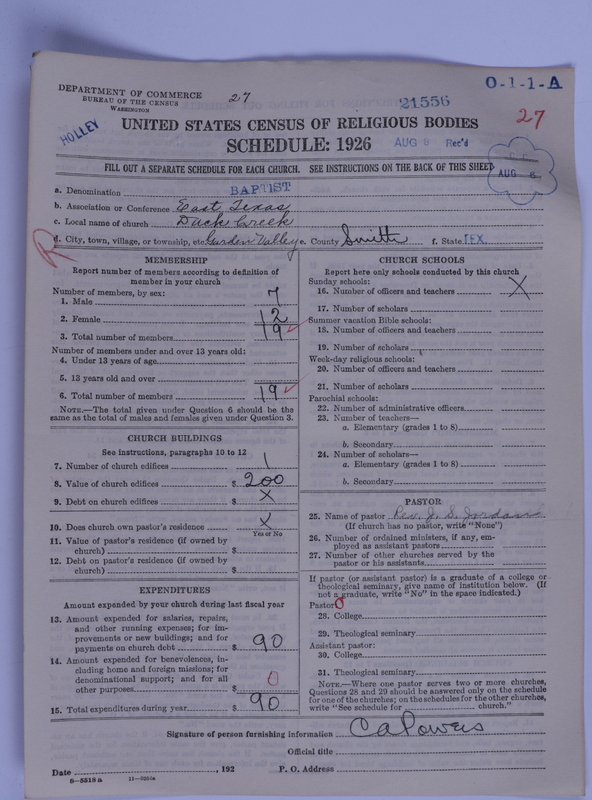 DEPARTMENT OF COMMERCE
BUREAU OF THE CENSUS
WASHINGTON
27
21556
O-1-1-A
27
HOLLEY
UNITED STATES CENSUS OF RELIGIOUS BODIES
SCHEDULE: 1926
AUG 8 Rec'd
AUG 6
FILL OUT A SEPARATE SCHEDULE FOR EACH CHURCH. SEE INSTRUCTIONS ON THE BACK OF THIS SHEET
a. Denomination BAPTIST
b. Association or Conference East Texas
c. Local name of church Duck Creek
R
d. City, town, village, or township, etc Garden Valley e. County Smith f. State TEX.
MEMBERSHIP
Report number of members according to definition of
member in your church
Number of members, by sex:
1. Male 7
2. Female 12
3. Total number of members 19
Number of members under and over 13 years old:
4. Under 13 years of age
5. 13 years old and over
6. Total number of members 19
NOTE.—The total given under Question 6 should be the
same as the total of males and females given under Question 3.
CHURCH BUILDINGS
See instructions, paragraphs 10 to 12
7. Number of church edifices 1
8. Value of church edifices $ 200
9. Debt on church edifices $ X
10. Does church own pastor's residence X
Yes or No
11. Value of pastor's residence (if owned by
church) $
12. Debt on pastor's residence (if owned by
church) $
EXPENDITURES
Amount expended by your church during last fiscal year
13. Amount expended for salaries, repairs,
and other running expenses; for im-
provements or new buildings; and for
payments on church debt $ 90
14. Amount expended for benevolences, in-
cluding home and foreign missions; for
denominational support; and for all
other purposes $ 0
15. Total expenditures during year $ 90
CHURCH SCHOOLS
Report here only schools conducted by this church
Sunday schools:
16. Number of officers and teachers X
17. Number of scholars
Summer vacation Bible schools:
18. Number of officers and teachers
19. Number of scholars
Week-day religious schools:
20. Number of officers and teachers
21. Number of scholars
Parochial schools:
22. Number of administrative officers
23. Number of teachers—
a. Elementary (grades 1 to 8)
b. Secondary
24. Number of scholars—
a. Elementary (grades 1 to 8)
b. Secondary
PASTOR
25. Name of pastor Rev. J. S. Jordan
(If church has no pastor, write "None")
26. Number of ordained ministers, if any, em-
ployed as assistant pastors
27. Number of other churches served by the
pastor or his assistants
If pastor (or assistant pastor) is a graduate of a college or
theological seminary, give name of institution below. (If
not a graduate, write "No" in the space indicated.)
Pastor: O
28. College
29. Theological seminary
Assistant pastor:
30. College
31. Theological seminary
NOTE.—Where one pastor serves two or more churches,
Questions 28 and 29 should be answered only on the schedule
for one of the churches; on the schedules for the other churches,
write "See schedule for church."
Signature of person furnishing information C A Powers
Official title
Date , 192 P. O. Address
8-5518 a